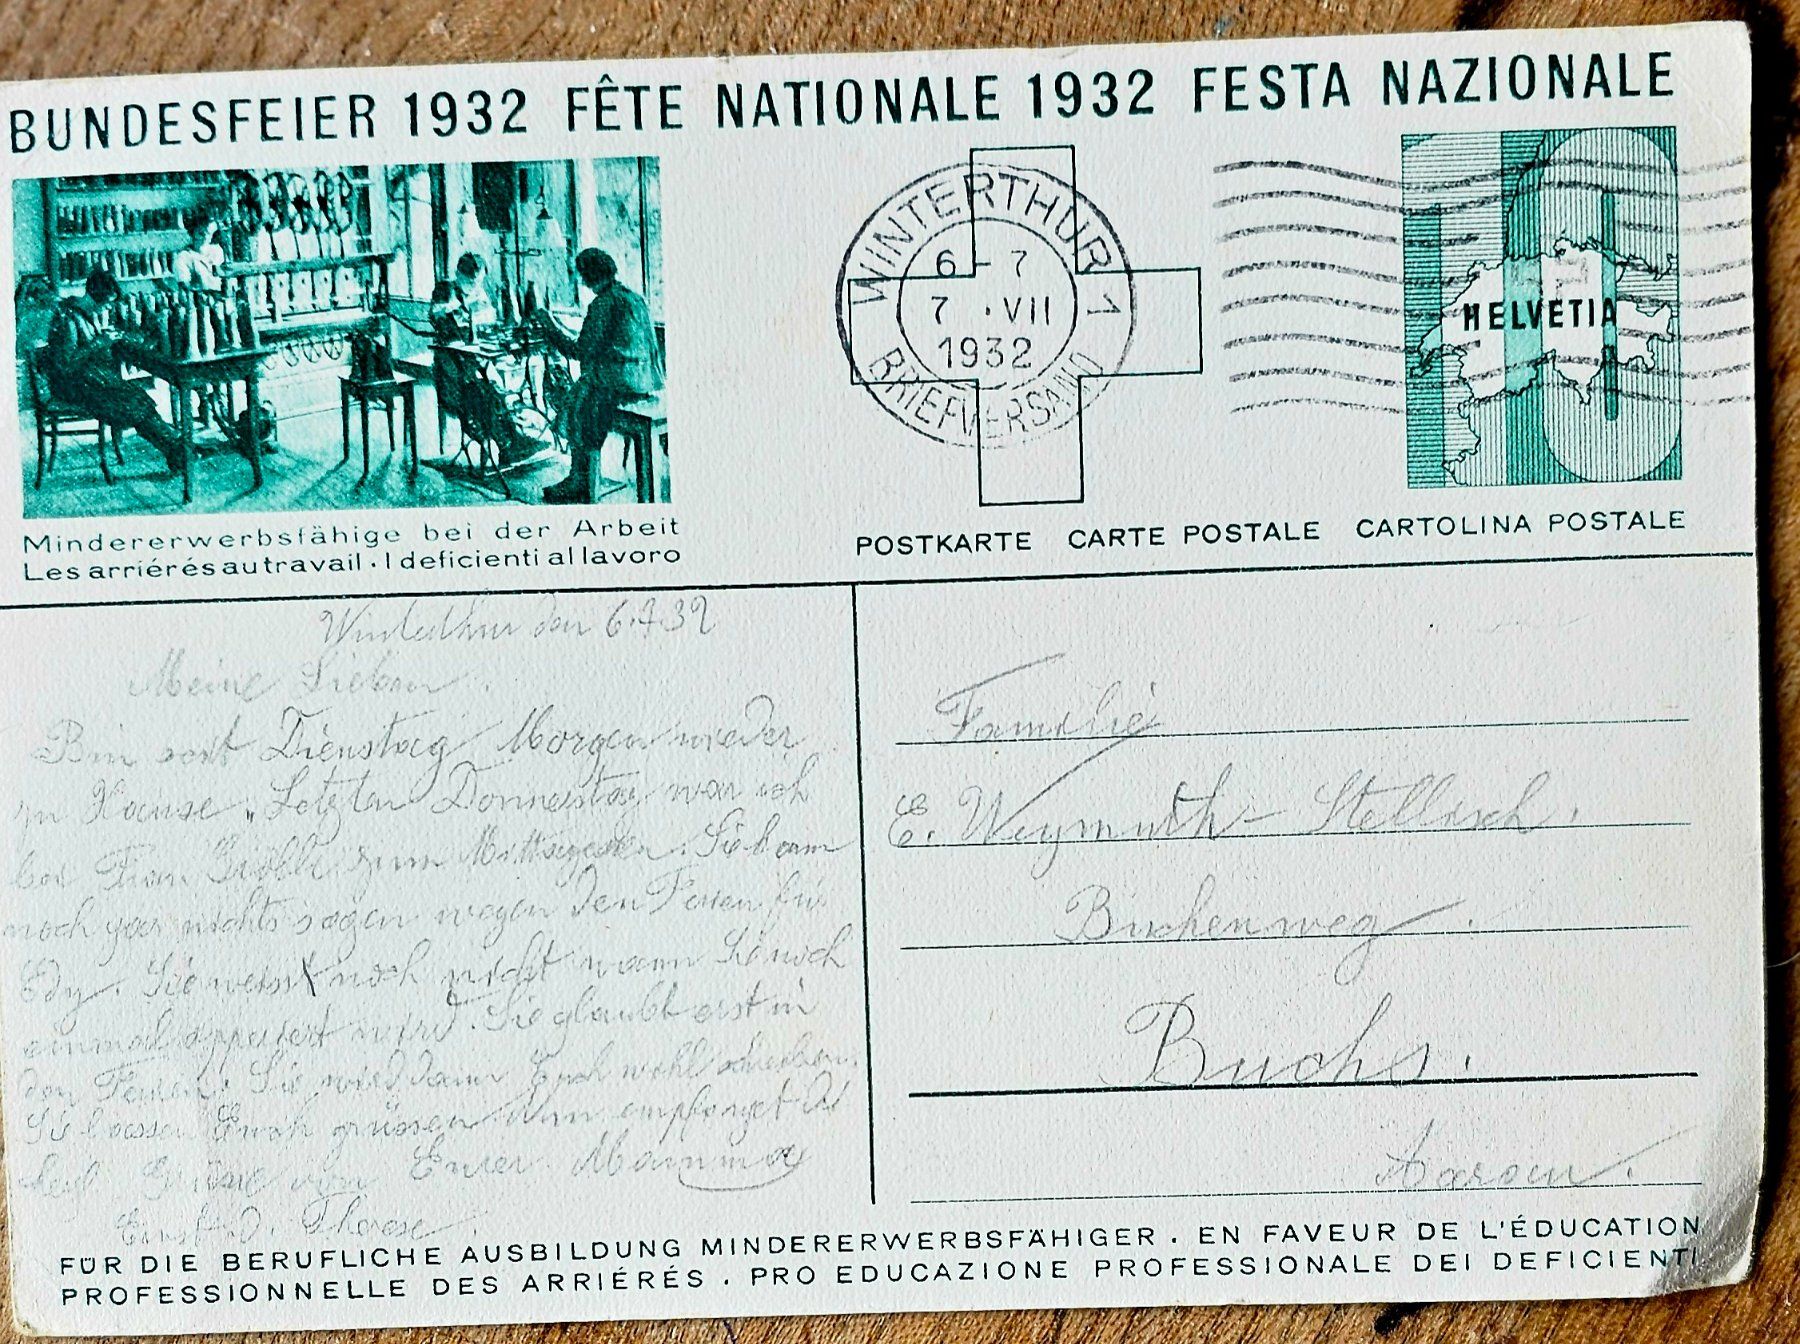 BUNDESFEIER 1932 FÊTE NATIONALE 1932 FESTA NAZIONALE
WINTERTHUR 1
6-7
7.VII
1932
BRIEFVERSAND
10
HELVETIA
Mindererwerbsfähige bei der Arbeit
Les arriérés au travail · I deficienti al lavoro
POSTKARTE CARTE POSTALE CARTOLINA POSTALE
Winterthur den 6.7.32
Meine Lieben.
Bin seit Dienstag Morgen wieder
zu Hause. Letzten Donnerstag war ich
bei Frau zum Mittagessen. Sie kann
noch gar nichts sagen wegen den Ferien für
Edy. Sie weisst noch nicht wann Sie noch
einmal operiert wird. Sie glaubt erst in
den Ferien. Sie wird dann Euch wohl schreiben.
Sie lassen Euch grüssen nun empfanget die
herzl. Grüsse von Eurer Mamma
Ernst u. Therese.
Familie
E. Weymuth-Stellisch.
Buchenweg.
Buchs.
Aarau.
FÜR DIE BERUFLICHE AUSBILDUNG MINDERERWERBSFÄHIGER . EN FAVEUR DE L'ÉDUCATION
PROFESSIONNELLE DES ARRIÉRÉS . PRO EDUCAZIONE PROFESSIONALE DEI DEFICIENTI